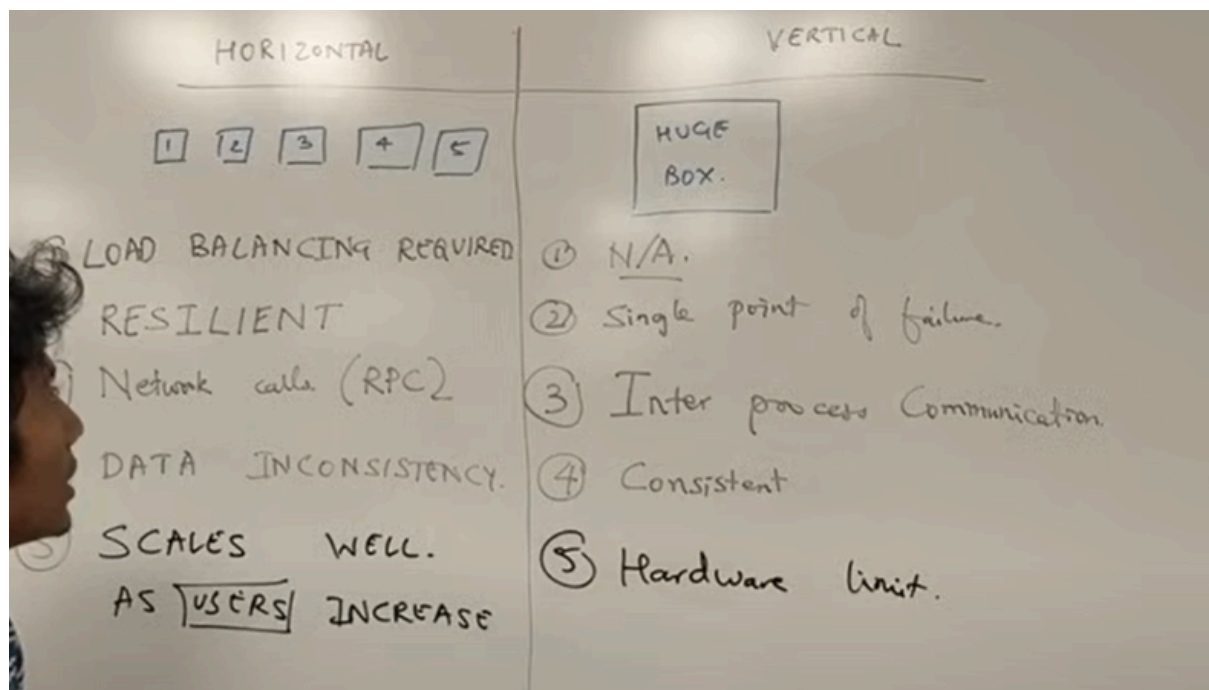 HORIZONTAL
1 2 3 4 5
LOAD BALANCING REQUIRED
RESILIENT
Network calls (RPC)
DATA INCONSISTENCY.
5 SCALES WELL.
AS USERS INCREASE
VERTICAL
HUGE
BOX.
1 N/A.
2 Single point of failure.
3 Inter process Communication.
4 Consistent
5 Hardware limit.